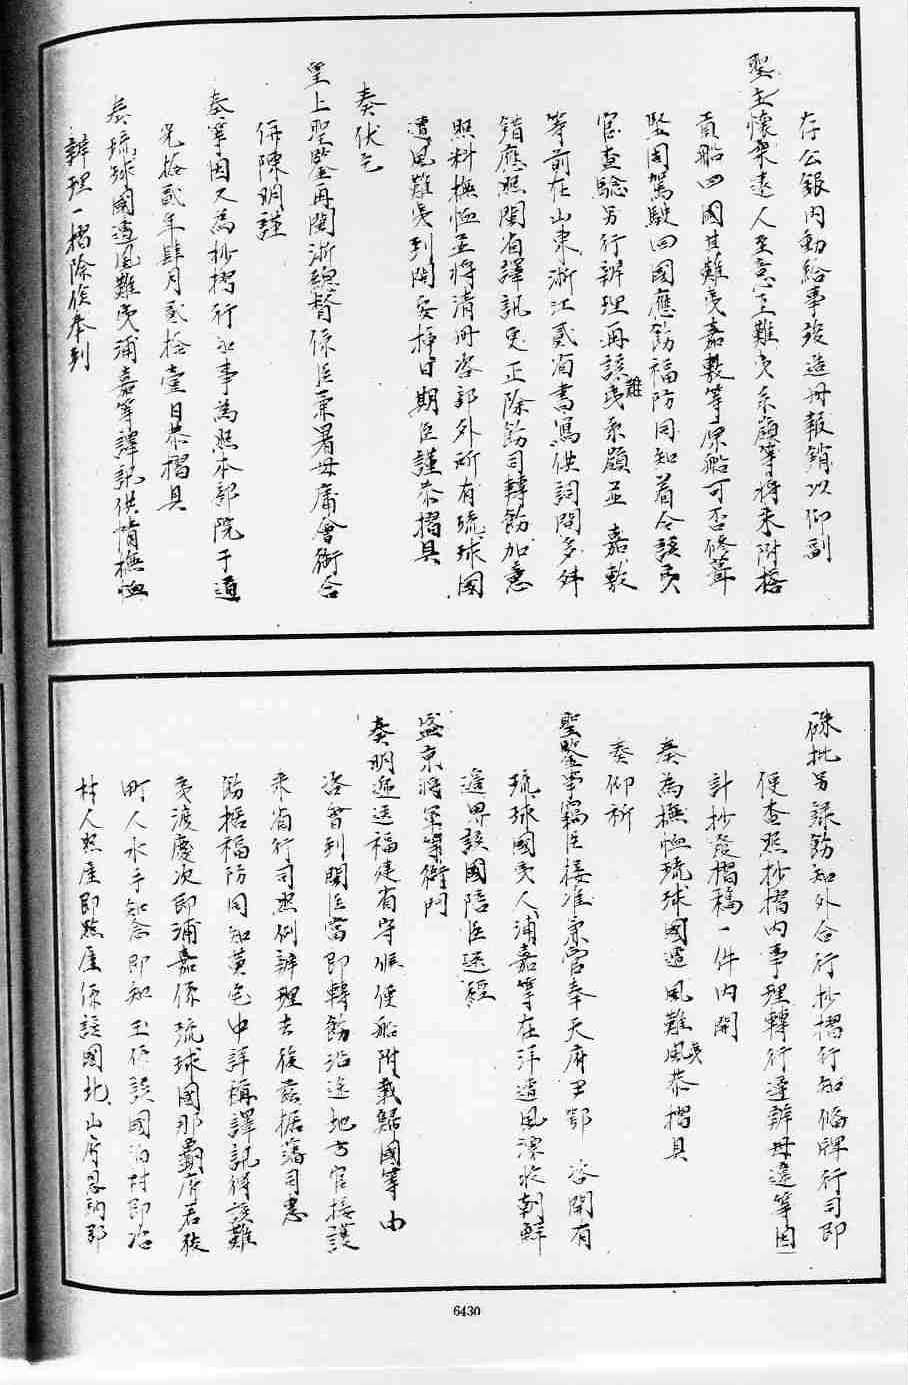 存公銀內動給事竣造冊報銷以仰副
聖主懷柔遠人至意至難夷糸嶺等將來附搭
貢船回國其難夷嘉數等原船可否修葺
堅固駕駛回國應飭福防同知着令該夷
官查驗另行辦理再該難夷糸嶺並嘉數
等前在山東浙江貳省書寫供詞間多舛
錯應照閩省譯訊更正除飭司轉飭加意
照料撫恤並將清冊咨部外所有琉球國
遭風難夷到閩安挿日期臣謹恭摺具
奏伏乞
皇上聖鑒再閩浙總督係臣兼署毋庸會銜合
併陳明謹
奏等因又為抄摺行知事為照本部院于道
光拾貳年肆月貳拾壹日恭摺具
奏琉球國遭風難夷浦嘉等譯訊供情撫恤
辦理一摺除俟奉到
硃批另錄飭知外合行抄摺行知俻牌行司即
便查照抄摺內事理轉行遵辦毋違等因
計抄發摺稿一件內開
奏為撫恤琉球國遭風難夷風恭摺具
奏仰祈
聖鑒事竊臣接准宗室奉天府尹鄂 咨開有
琉球國夷人浦嘉等在洋遭風漂收朝鮮
邊界該國陪臣送經
盛京將軍等衙門
奏明遞送福建省守候便船附載歸國等由
咨會到閩臣當即轉飭沿途地方官接護
來省行司照例辦理去後茲據藩司惠
飭據福防同知黃宅中詳稱譯訊得該難
夷渡慶次即浦嘉係琉球國那霸府若狹
町人水手知念即知玉係該國泊村即泊
村人照屋即照屋係該國北山府恩納郡
6430